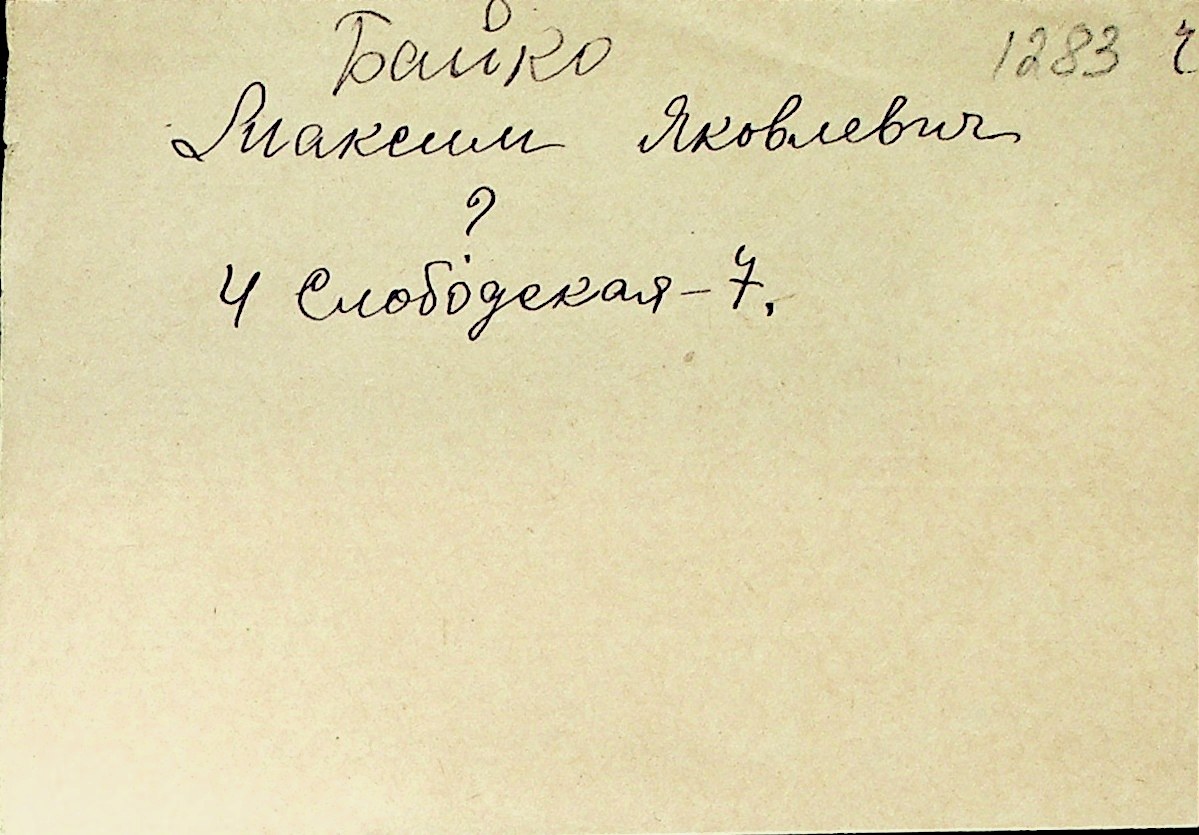 Байко 1283 ч
Максим Яковлевич
?
4 Слободская-7.